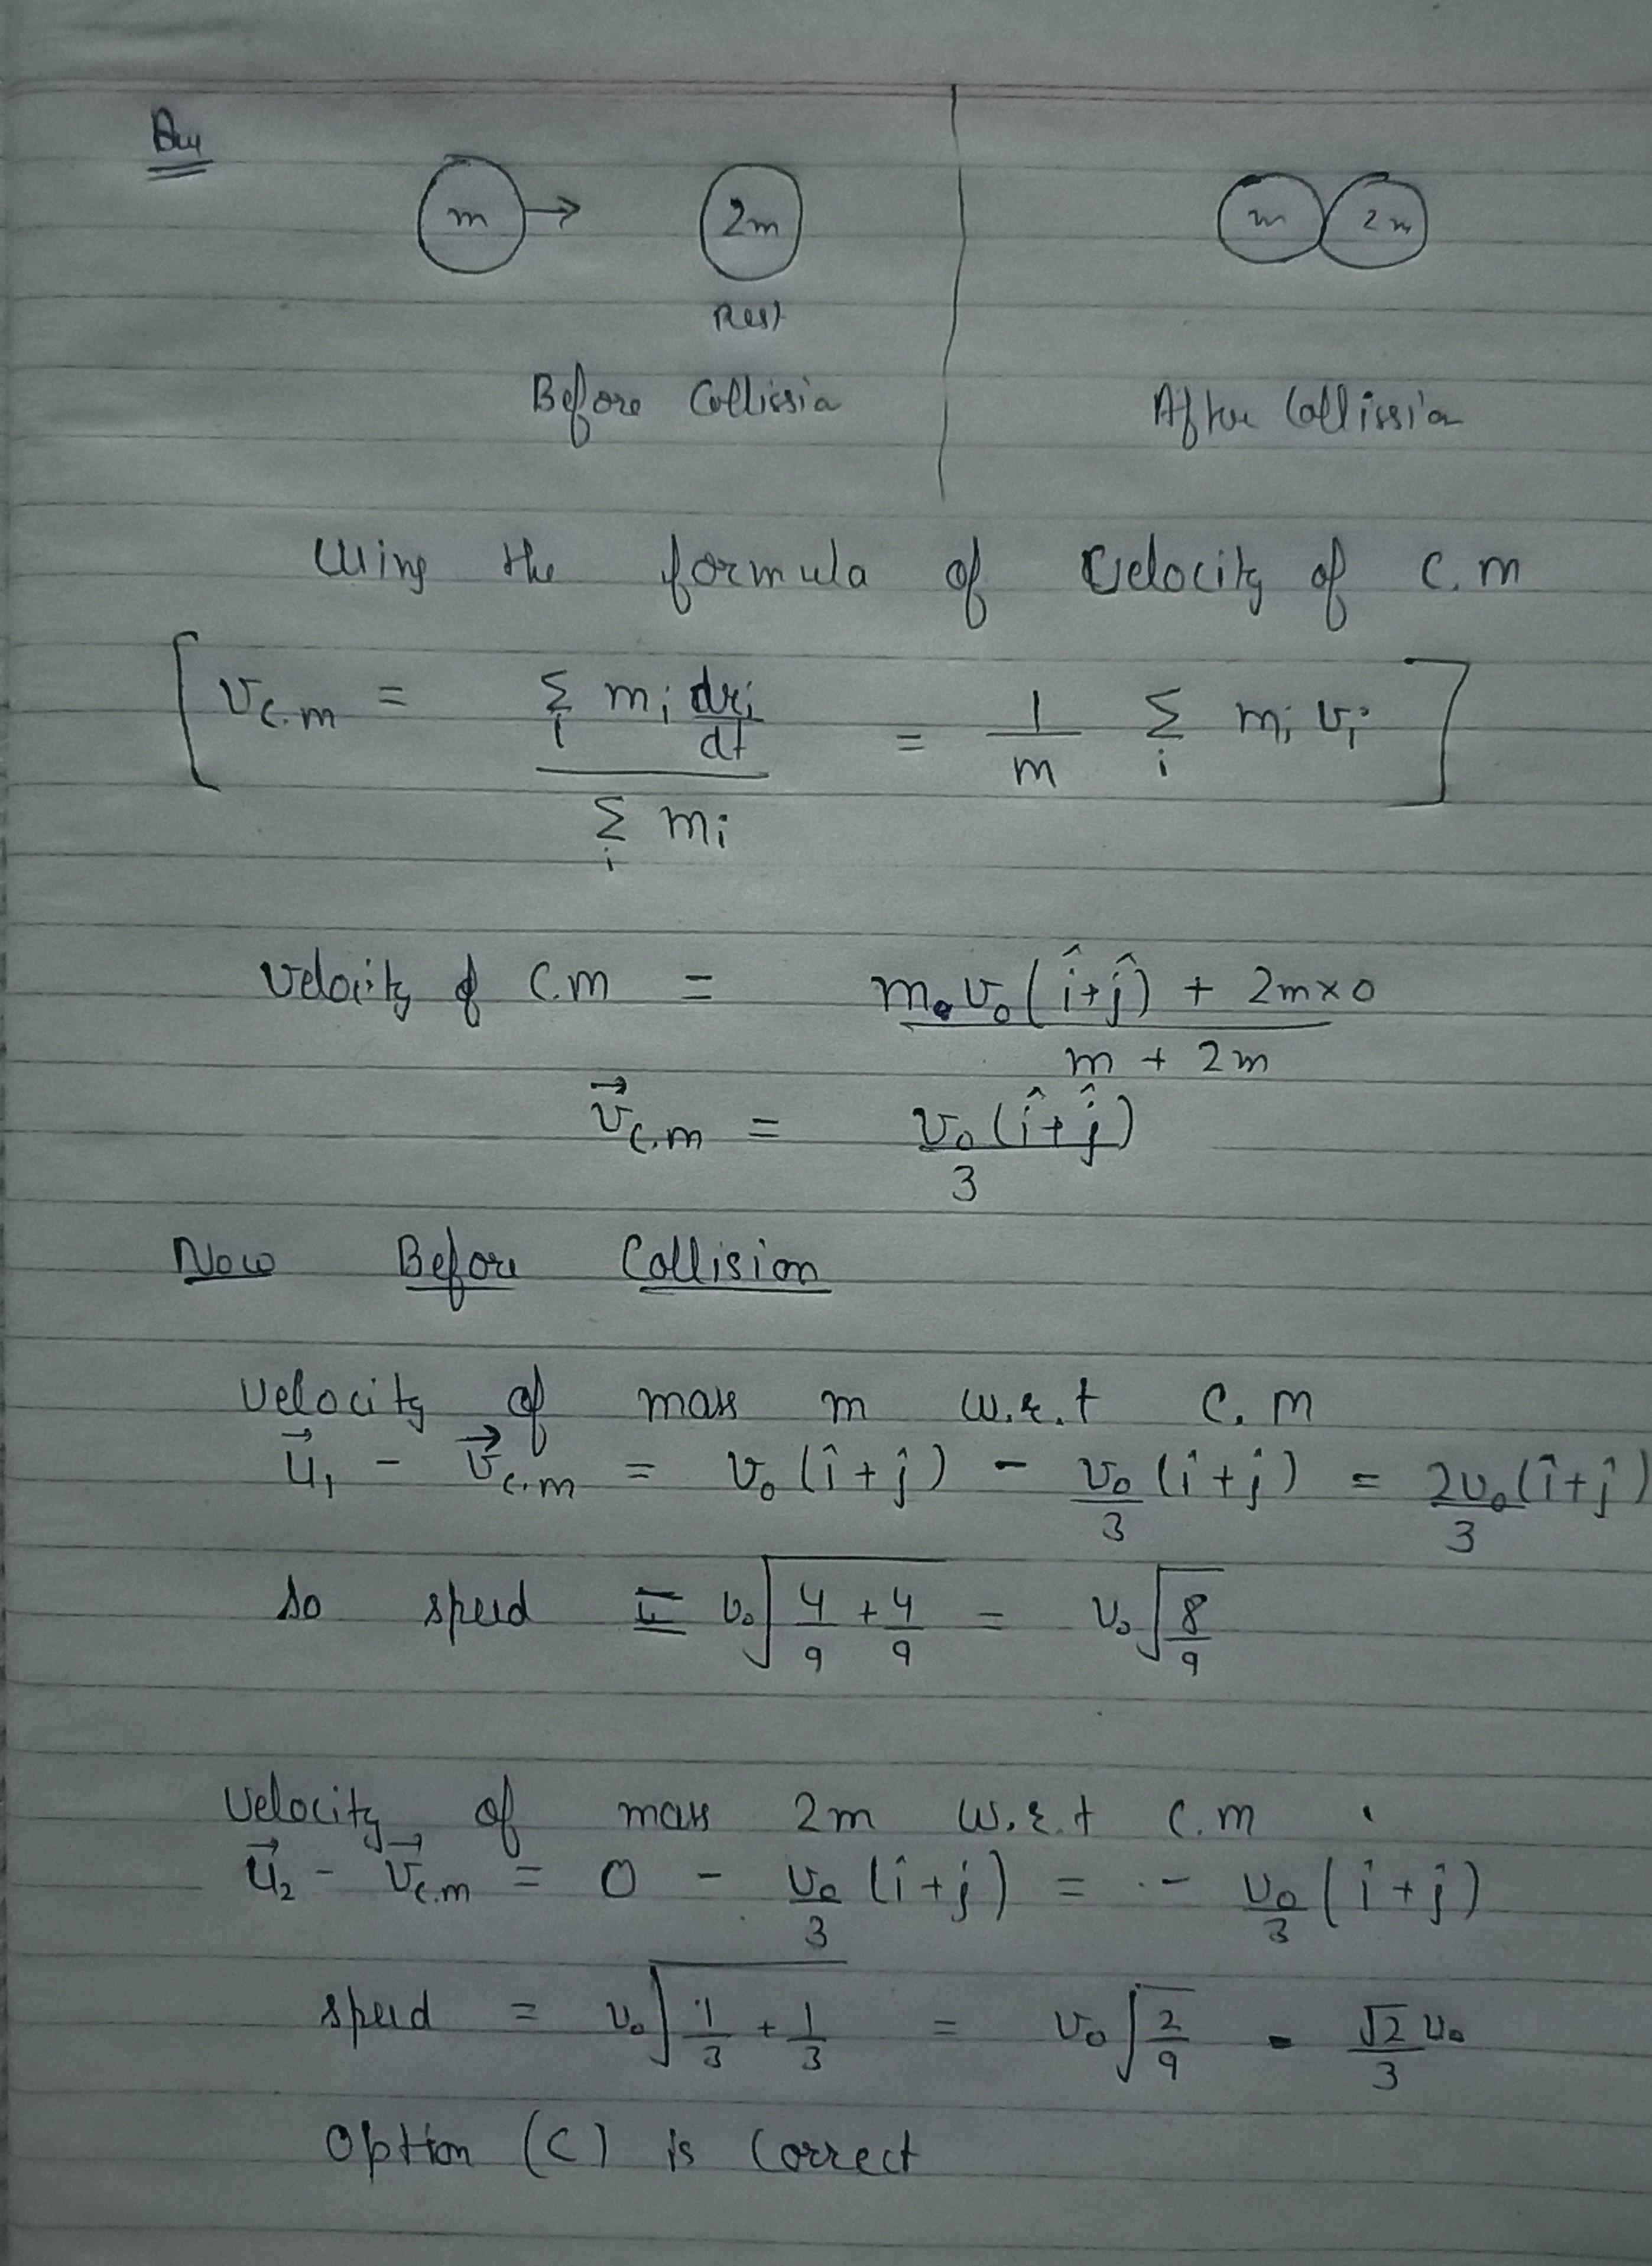 m → 2m
m 2m
Rest
Before Collissia
After Collission
Using the formula of Velocity of C.m
[ v_c.m = Σ_i m_i dr_i/dt / Σ_i m_i = 1/m Σ_i m_i v_i ]
Velocity of C.m = m v₀(î+ĵ) + 2m×0 / m + 2m
v⃗_c.m = v₀(î+ĵ) / 3
Now Before Collision
Velocity of mass m w.r.t C.m
u⃗₁ - v⃗_c.m = v₀(î+ĵ) - v₀/3 (î+ĵ) = 2v₀/3 (î+ĵ)
So speed = v₀√(4/9 + 4/9) = v₀√(8/9)
Velocity of mass 2m w.r.t C.m
u⃗₂ - v⃗_c.m = 0 - v₀/3 (î+ĵ) = - v₀/3 (î+ĵ)
speed = v₀√(1/3 + 1/3) = v₀√(2/9) = √2/3 v₀
Option (C) is Correct